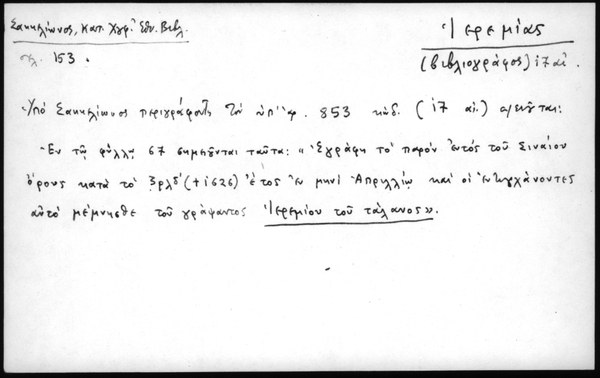 Σακκελίωνος, Κατ. Χγρ. Εθν. Βιβλ.
σελ. 153.
Ἱερεμίας
(βιβλιογράφος) 17 αἰ.
Ὑπό Σακκελίωνος περιγράφοντος τόν ὑπ' ἀρ. 853 κώδ. (17 αἰ.) λέγεται:
Ἐν τῷ φύλλῳ 67 σημειοῦνται ταῦτα: «Ἐγράφη τό παρόν ἐντός τοῦ Σιναίου
ὄρους κατά τό ζρλδ' (+1626) ἔτος ἐν μηνί Ἀπριλλίῳ καί οἱ ἐντυγχάνοντες
αὐτό μέμνησθε τοῦ γράψαντος Ἱερεμίου τοῦ τάλανος».